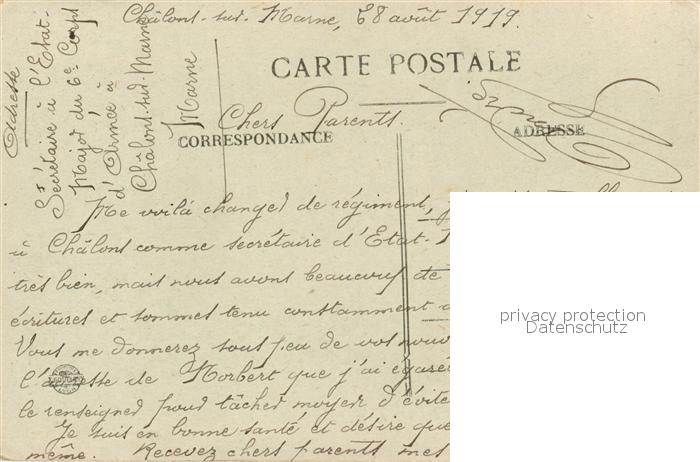 Châlons-sur-Marne, le 8 août 1919.
CARTE POSTALE
CORRESPONDANCE
ADRESSE
Adresse
Secrétaire à l'Etat-
Major du 6e Corps
d'Armée à
Châlons-sur-Marne
Marne
Chers Parents.
Me voilà changer de régiment,
à Châlons comme secrétaire d'Etat-
très bien, mais nous avons beaucoup de
écritures et sommes tenu constamment
Vous me donnerez sous peu de vos
l'adresse de Norbert que j'ai
le renseigner pour tâcher moyen
Je suis en bonne santé et désire que
même. Recevez chers parents mes
privacy protection
Datenschutz